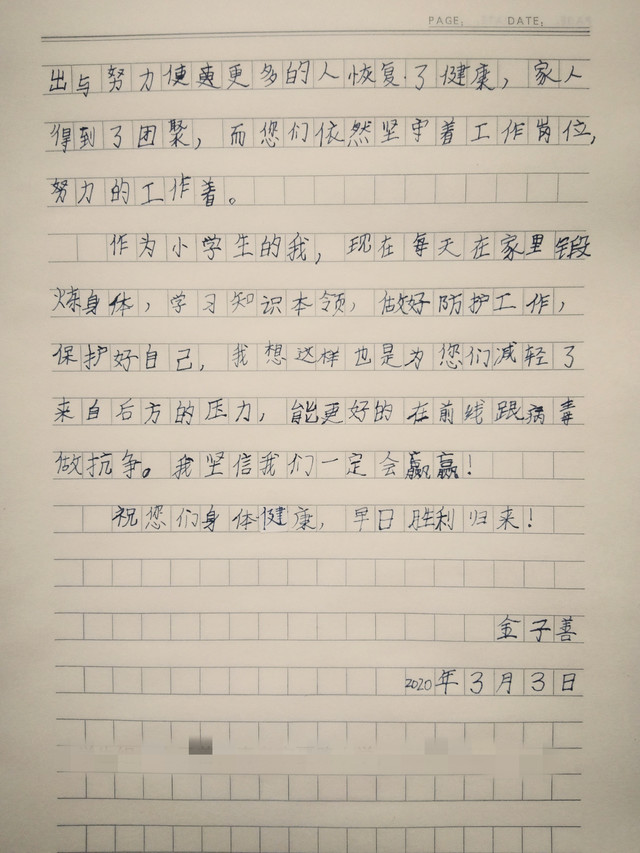 PAGE: DATE:
出与努力使更多的人恢复了健康，家人
得到了团聚，而您们依然坚守着工作岗位，
努力的工作着。
作为小学生的我，现在每天在家里锻
炼身体，学习知识本领，做好防护工作，
保护好自己，我想这样也是为您们减轻了
来自后方的压力，能更好的在前线跟病毒
做抗争。我坚信我们一定会赢！
祝您们身体健康，早日胜利归来！
金子善
2020年3月3日